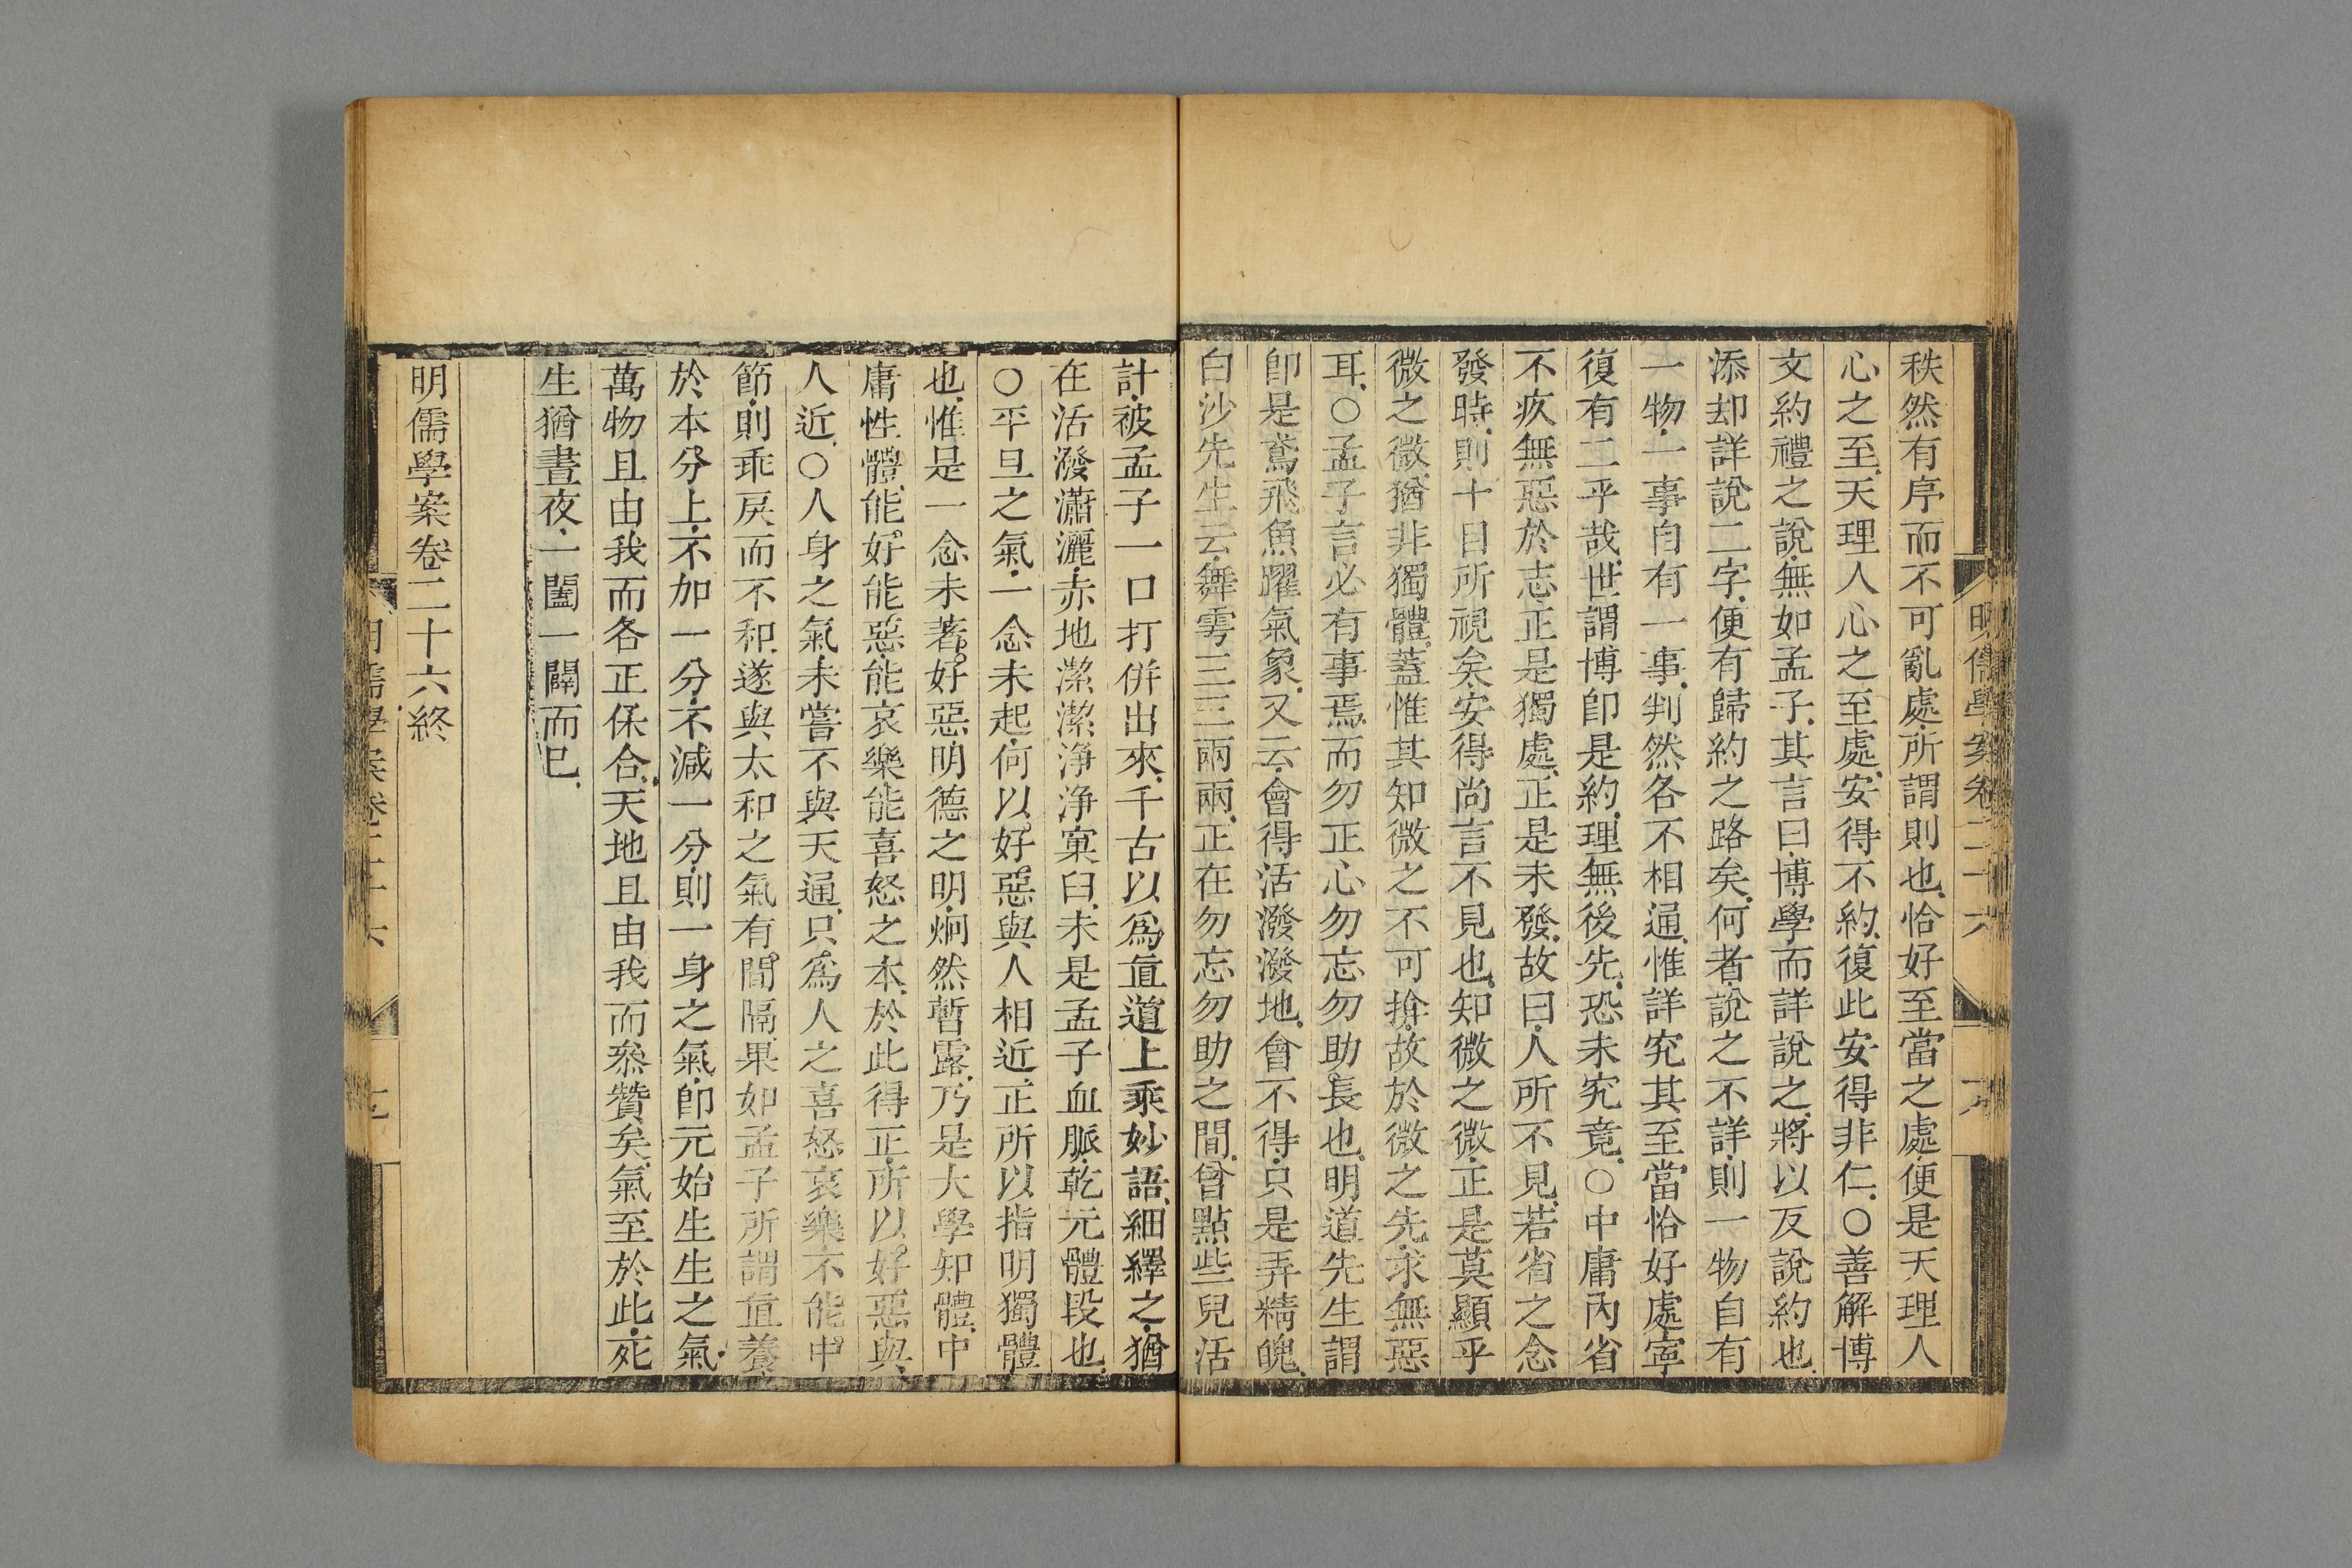 秩然有序而不可亂處所謂則也恰好至當之處便是天理人
心之至天理人心之至處安得不約復此安得非仁○善解博
文約禮之說無如孟子其言曰博學而詳說之將以反說約也
添却詳說二字便有歸約之路矣何者說之不詳則一物自有
一物一事自有一事判然各不相通惟詳究其至當恰好處寧
復有二乎哉世謂博卽是約理無後先恐未究竟○中庸內省
不疚無惡於志正是獨處正是未發故曰人所不見若省之念
發時則十目所視矣安得尚言不見也知微之微正是莫顯乎
微之微猶非獨體蓋惟其知微之不可揜故於微之先求無惡
耳○孟子言必有事焉而勿正心勿忘勿助長也明道先生謂
卽是鳶飛魚躍氣象又云會得活潑潑地會不得只是弄精魄
白沙先生云舞雩三三兩兩正在勿忘勿助之間曾點些兒活
計被孟子一口打併出來千古以爲直道上乘妙語細繹之猶
在活潑瀟灑赤地潔潔淨淨窠臼未是孟子血脈乾元體段也
○平旦之氣一念未起何以好惡與人相近正所以指明獨體
也惟是一念未著好惡明德之明炯然暫露乃是大學知體中
庸性體能好能惡能哀樂能喜怒之本於此得正所以好惡與
人近○人身之氣未嘗不與天通只爲人之喜怒哀樂不能中
節則乖戾而不和遂與太和之氣有間隔果如孟子所謂直養
於本分上不加一分不減一分則一身之氣卽元始生生之氣
萬物且由我而各正保合天地且由我而叅贊矣氣至於此死
生猶晝夜一闔一闢而已
明儒學案卷二十六終
明儒學案卷二十六
明儒學案卷二十六